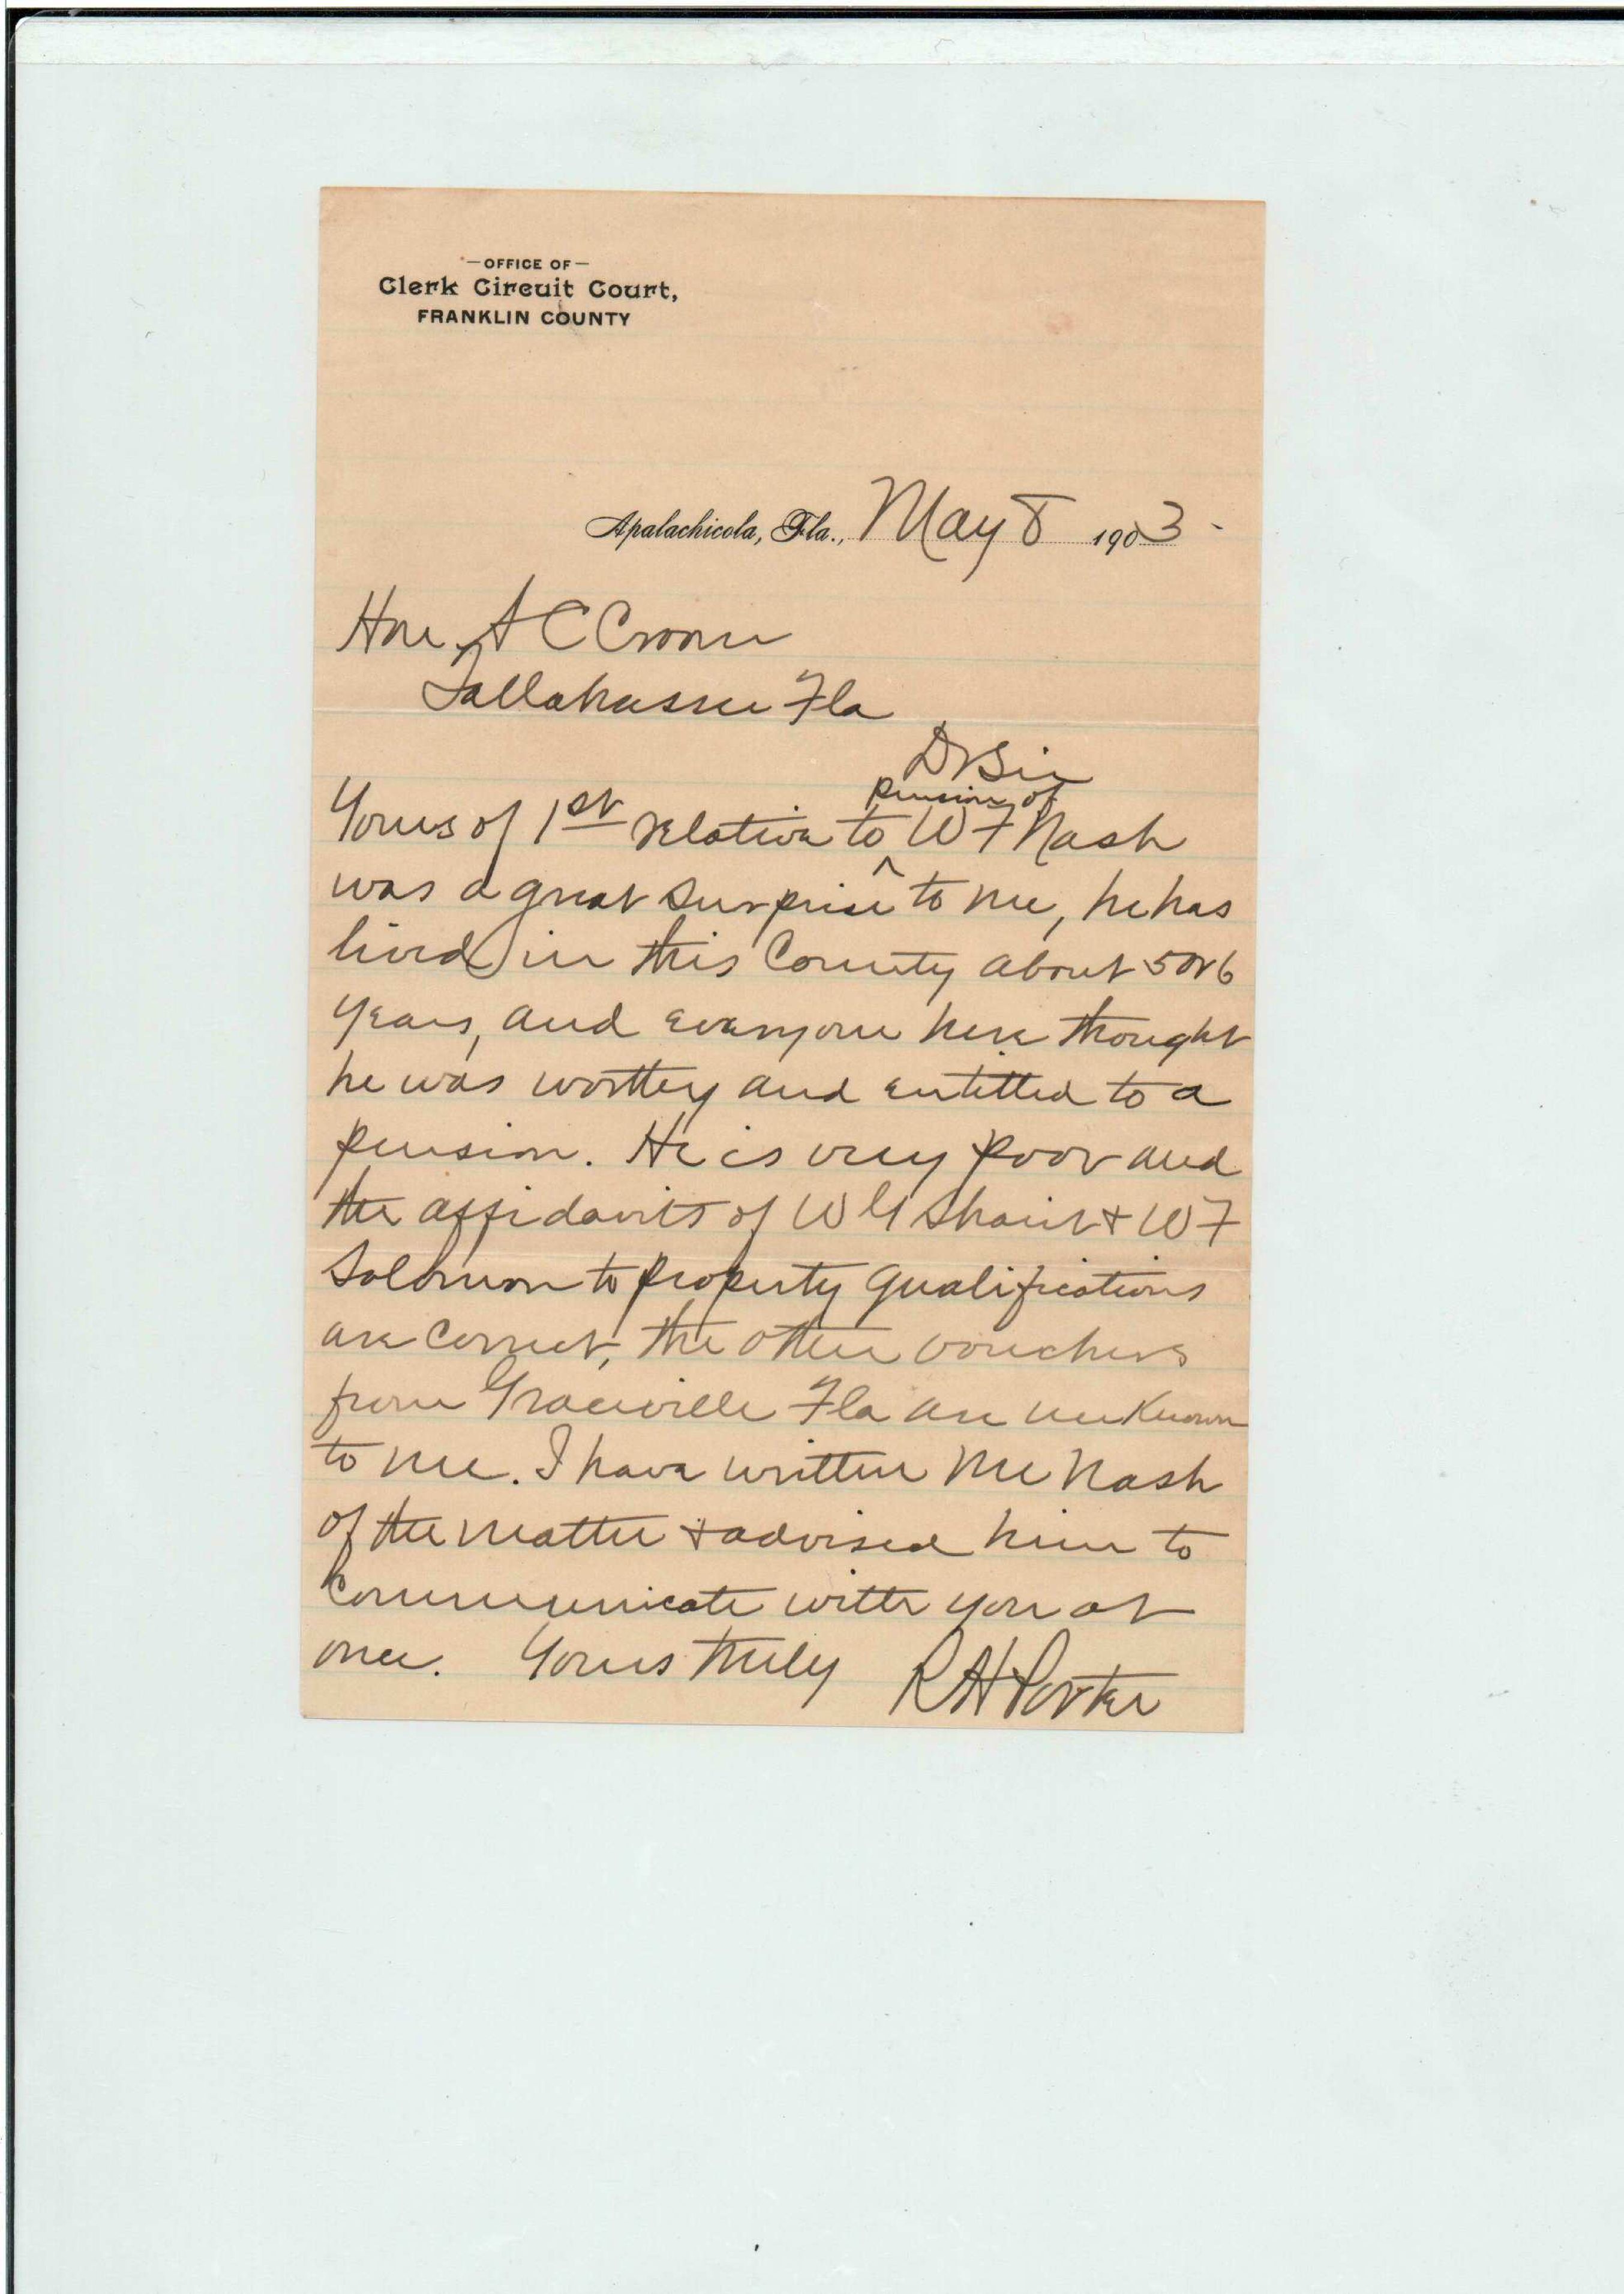 —OFFICE OF—
Clerk Circuit Court,
FRANKLIN COUNTY
Apalachicola, Fla., May 8 1903-
Hon. A C Croom
Tallahassee Fla
Dr Sir
pension of
Yours of 1st relative to ^ W F Nash
was a great surprise to me, he has
lived in this County about 5 or 6
years, and everyone here thought
he was worthy and entitled to a
pension. He is very poor and
the affidavits of W G & W F
Solomon to property qualifications
are correct, the other vouchers
from Graceville Fla are unknown
to me. I have written Mr Nash
of the matter & advised him to
communicate with you at
once. Yours truly R H Porter